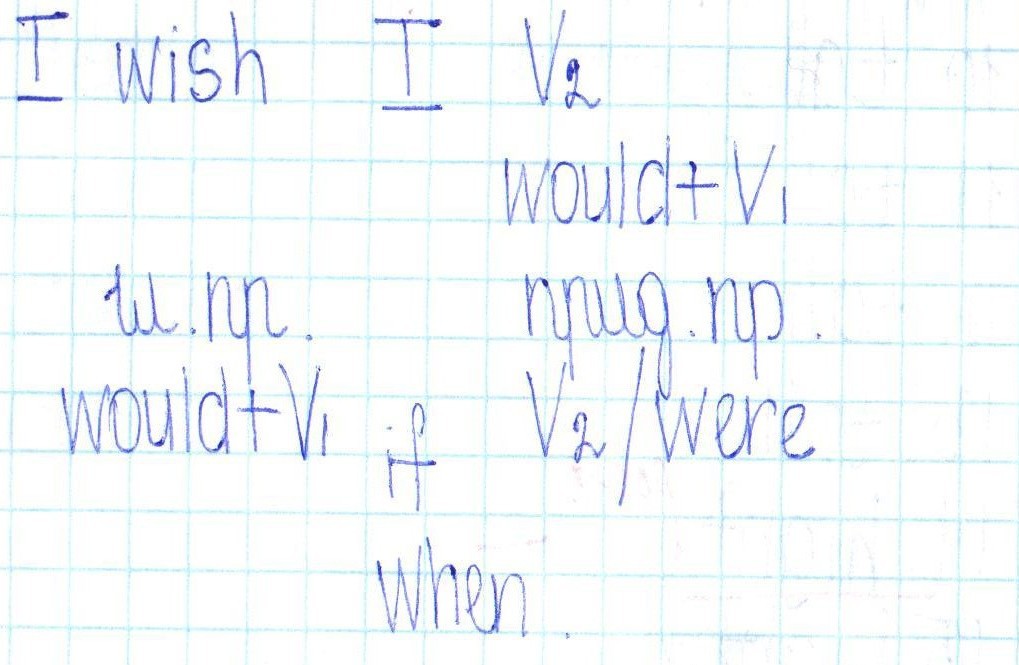 I wish I V₂
would+V₁
гл.пр. прид.пр.
would+V₁ if V₂/were
when.